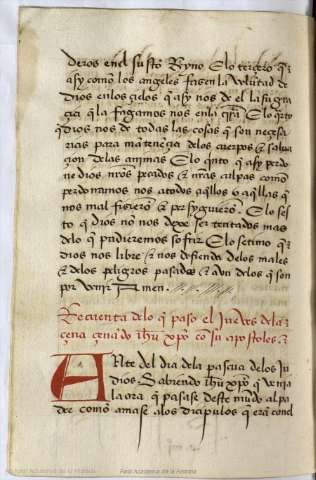 deros enel su sto Ryno Elo tercero q̃
asy como los angeles fasen la volu̅tad de
dios enlos çielos q̃ asy nos de el la su gra
çia q̃ la fagamos nos enla tr̃a Elo q̃rto
q̃ dios nos de todas las cosas q̃ son neçesa
rias para ma̅tene̅çia delos cuerpos & salua
çion delas animas Elo qui̅to q̃ asy perdo
ne dios nr̃os pecados & nr̃as culpas como
perdonamos nos atodos aq̃llos o aq̃llas q̃
nos mal fisiero̅ & persyguiero̅. Elo ses
to q̃ dios no̅ nos dexe ser tentados mas
delo q̃ pudieremos sofrir Elo setimo q̃
dios nos libre & nos defienda delos males
& delos peligros pasados & avn delos q̃ son
por venir Amen
Recuenta delo q̃ paso el jueves dela
çena çena̅do ih̃u xp̃o co̅ su apostoles
ANte del dia dela pascua delos ju
dios Sabiendo ih̃u xp̃o q̃ venia
la ora q̃ pasase deste mu̅do al pa
dre como amase alos diçipulos q̃ era̅ conel
Real Academia de la Historia